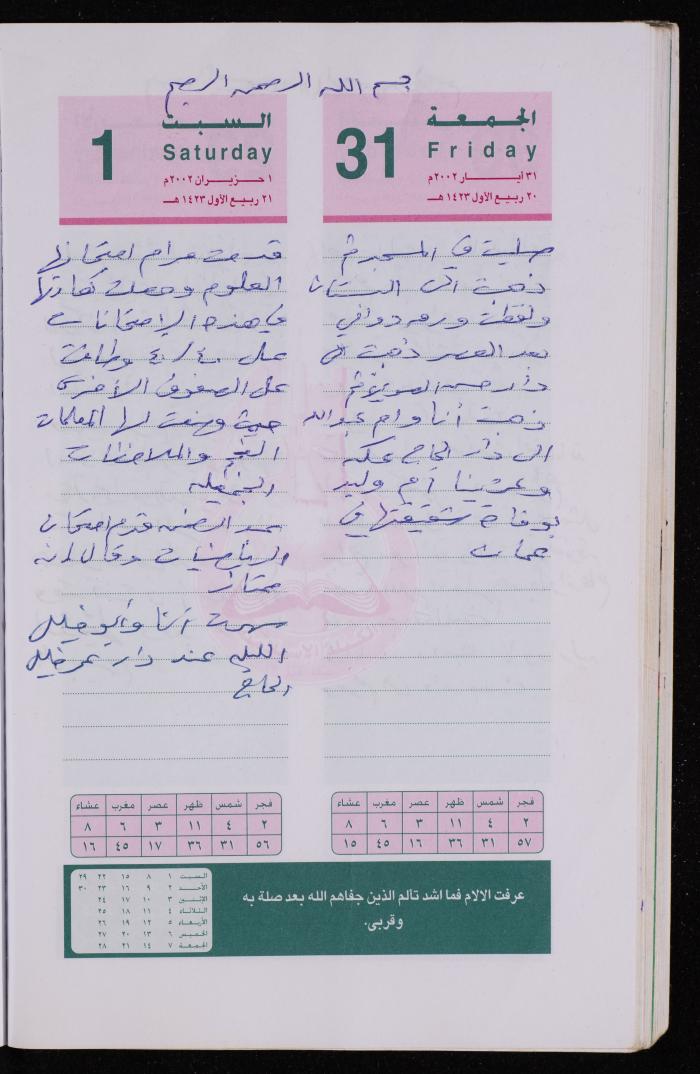 بسم الله الرحمن الرحيم
الجمعة
31
Friday
٣١ ايـــار ٢٠٠٢م
٢٠ ربيع الأول ١٤٢٣ هـ
صليت في المسجد
ذهبت الى البستان
ولقطت ورق دوالي
بعد العصر ذهبت الى
دار حسن
ذهبت أنا وام عبدالله
الى دار الحاج
وعزينا ام وليد
بوفاة شقيقتها في
عمان
السبت
1
Saturday
١ حـزيـران ٢٠٠٢م
٢١ ربيع الأول ١٤٢٣ هـ
قدمت مرام امتحانها
العلوم وجعلت
في هذه الامتحانات
على ٤٠/٤٠ وطافت
على الصفوف الأخرى
حيث وضعت لها المعلمات
والملاحظات
الجميله
قدم امتحان
الرياضيات وقال انه
ممتاز
سهرت أنا وأبو خليل
الليله عند دار عمر خليل
الحاج
فجر شمس ظهر عصر مغرب عشاء
٢ ٤ ١١ ٣ ٦ ٨
٥٧ ٣١ ٣٦ ١٦ ٤٥ ١٥
فجر شمس ظهر عصر مغرب عشاء
٢ ٤ ١١ ٣ ٦ ٨
٥٦ ٣١ ٣٦ ١٧ ٤٥ ١٦
عرفت الالام فما اشد تألم الذين جفاهم الله بعد صلة به
وقربى.
السبت ١ ٨ ١٥ ٢٢ ٢٩
الأحـد ٢ ٩ ١٦ ٢٣ ٣٠
الإثنين ٣ ١٠ ١٧ ٢٤
الثلاثاء ٤ ١١ ١٨ ٢٥
الأربعاء ٥ ١٢ ١٩ ٢٦
الخميس ٦ ١٣ ٢٠ ٢٧
الجمعة ٧ ١٤ ٢١ ٢٨